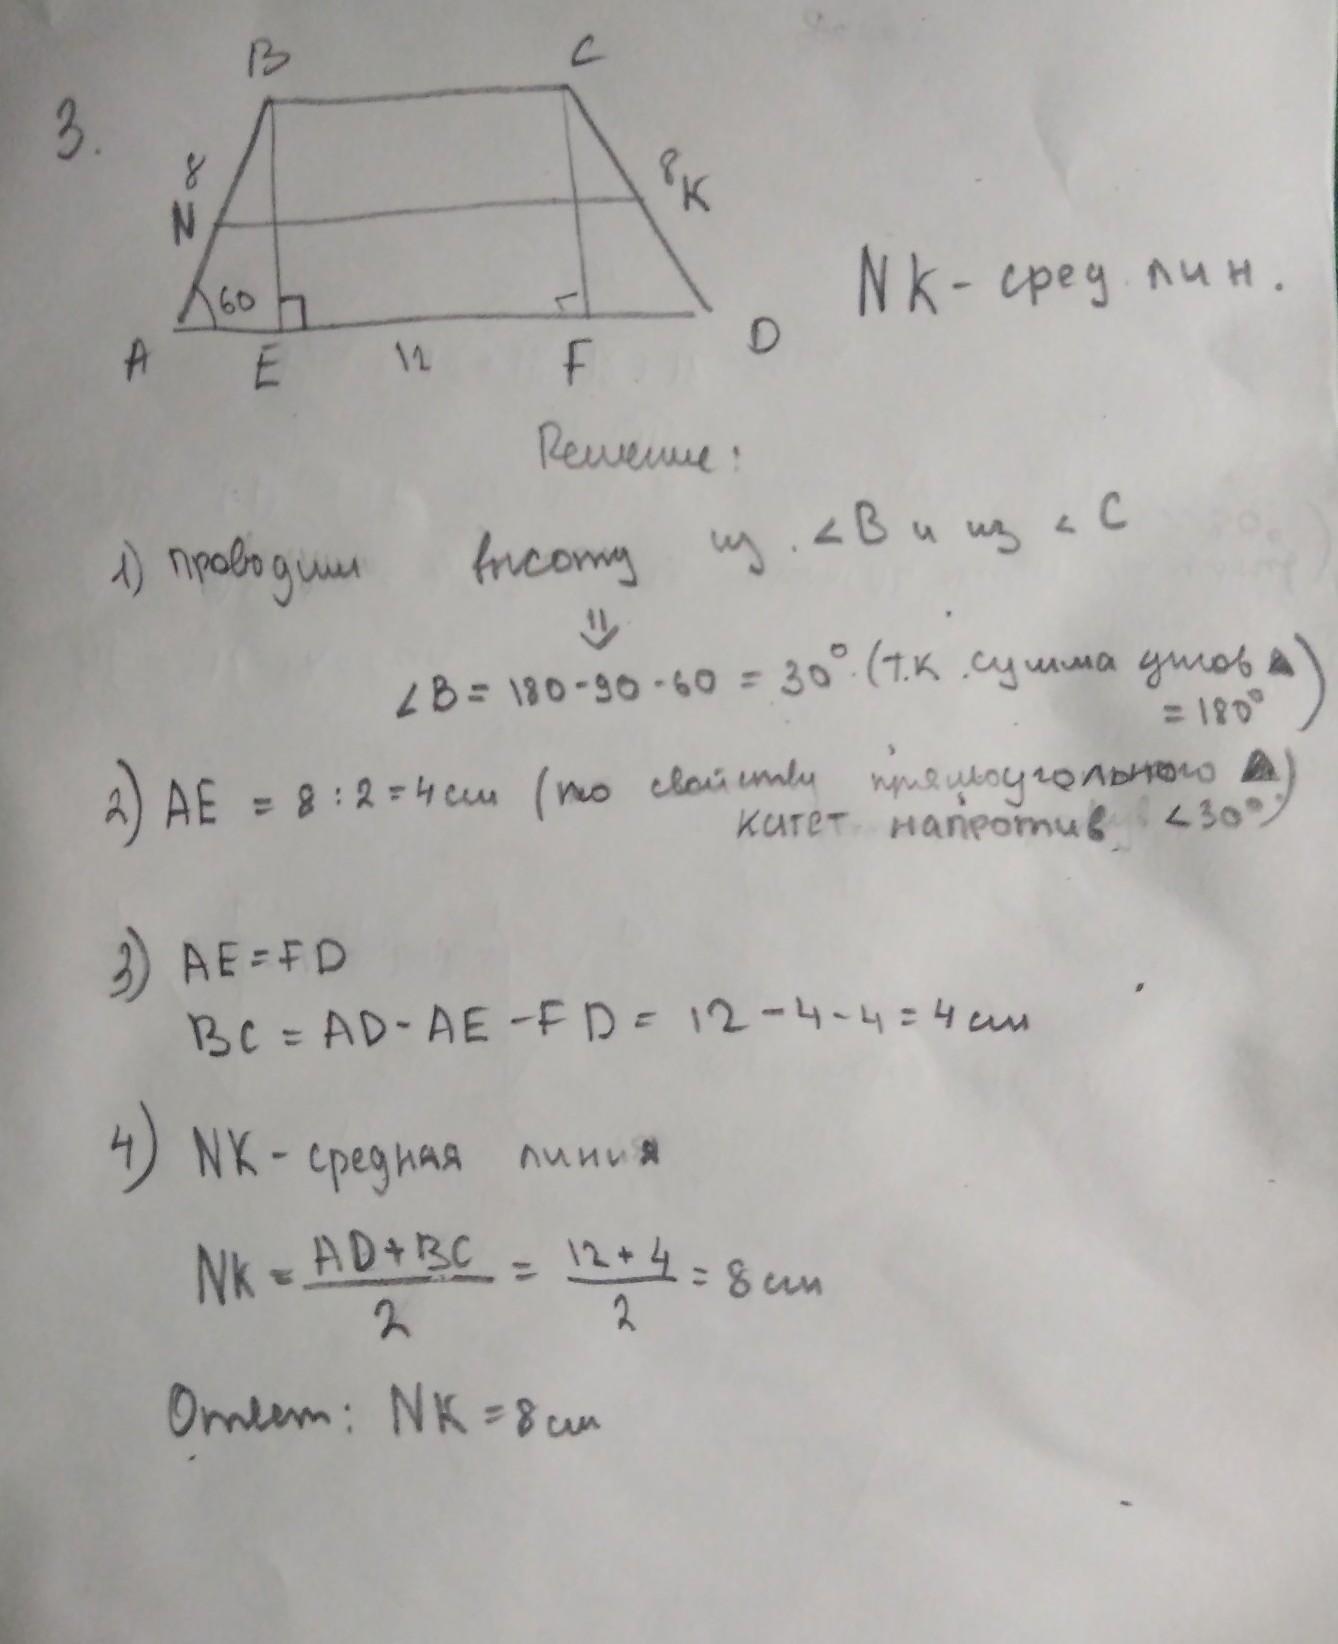 3.
B C
8 8
N K
60
A E 12 F D
NK - сред. лин.
Решение:
1) проводим высоту из <B и из <C
⇓
<B = 180-90-60 = 30° (т.к. сумма углов ▲
= 180°)
2) AE = 8 : 2 = 4 см (по свойству прямоугольного ▲
катет напротив <30°)
3) AE = FD
BC = AD - AE - FD = 12 - 4 - 4 = 4 см
4) NK - средная линия
NK = AD + BC / 2 = 12 + 4 / 2 = 8 см
Ответ: NK = 8 см